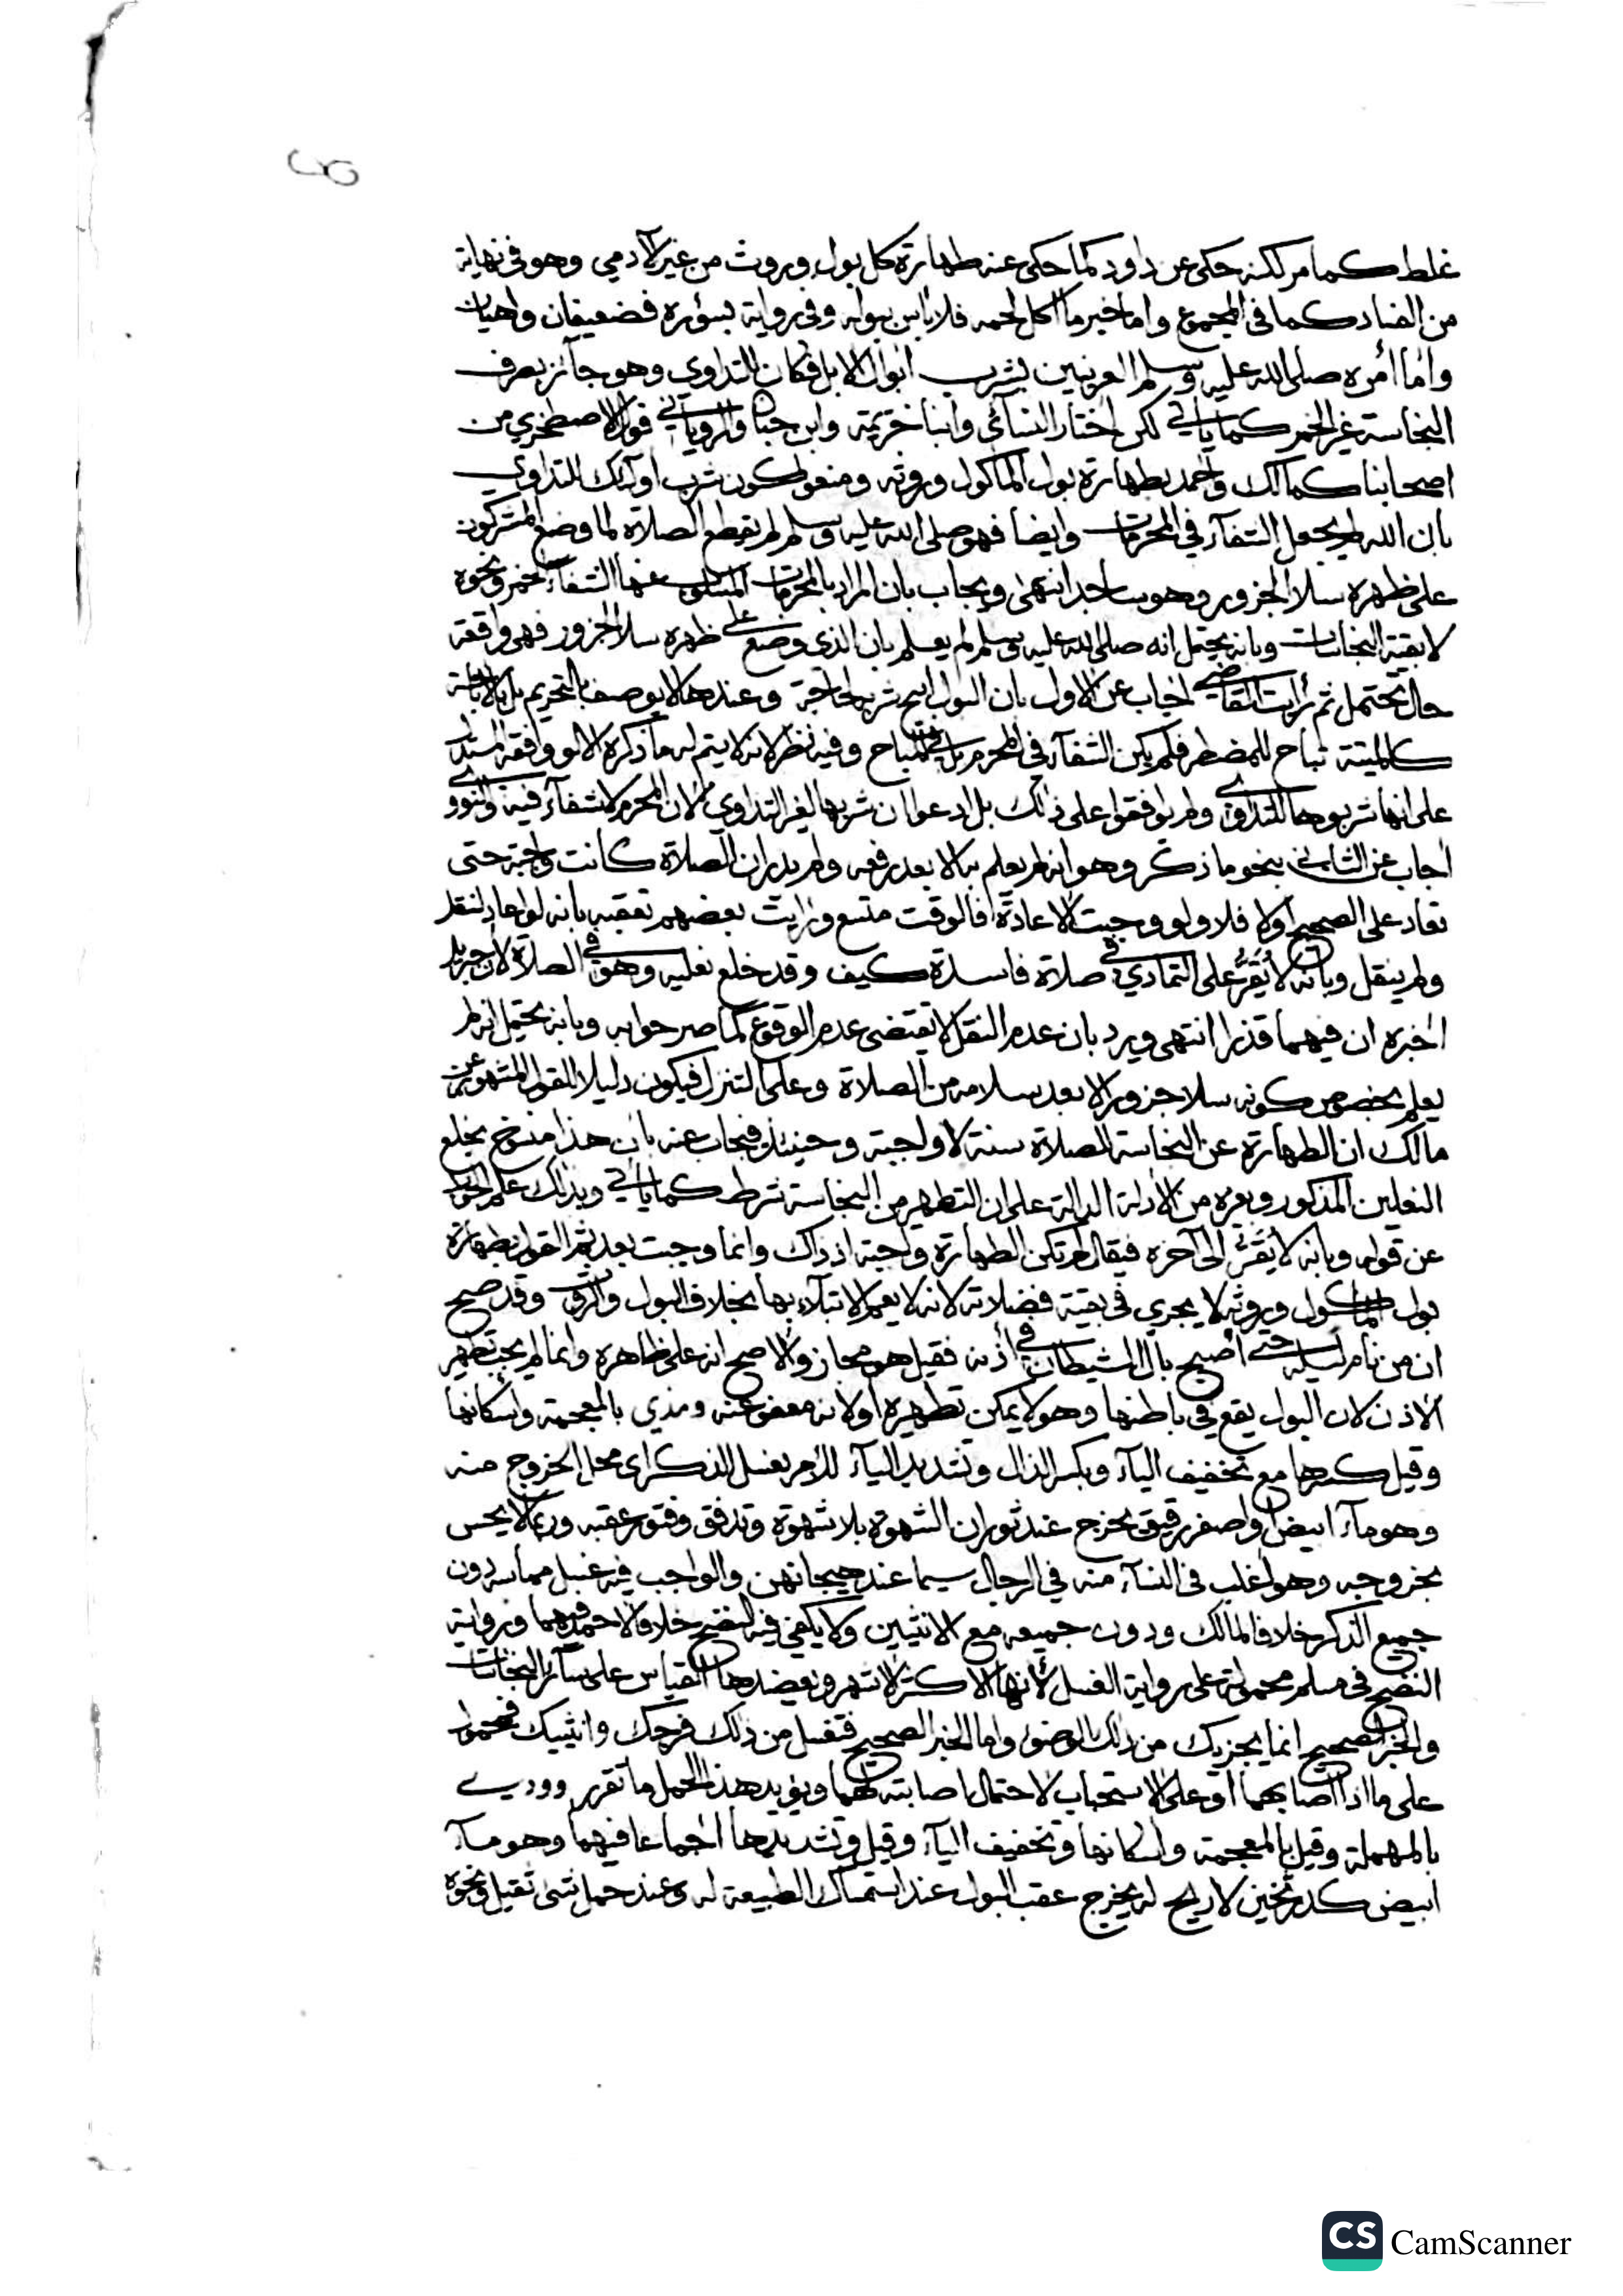 غلط كما مر لكنه حكى عن داود كما حكى عنه طهارة كل بول وروث من غير الآدمي وهو في نهاية
من الفساد كما في المجموع واما خبر ما اكل لحمه فلا باس ببوله وفي رواية بسؤره فضعيفان واهيان
واما أمره صلى الله عليه وسلم العرنيين بشرب ابوال الابل فكان للتداوي وهو جائز بصرف
النجاسة غير الخمر كما ياتي لكن اختار النسائي وابنا خزيمة وابن حبان والروياني قول الاصطخري من
اصحابنا كمالك واحمد بطهارة بول الماكول وروثه ومنعوا كون شرب اولئك للتداوي
بان الله لم يجعل الشفآء في المحرمات وايضا فهو صلى الله عليه وسلم لم يقطع الصلاة لما وضع المشركون
على ظهره سلا الجزور وهو ساجد انتهى ويجاب بان المراد بالمحرمات المسلوب عنها الشفآء الخمر ونحوه
لا بقية النجاسات وبانه يحتمل انه صلى الله عليه وسلم لم يعلم بان الذي وضع على ظهره سلا الجزور فهي واقعة
حال تحتمل ثم رأيت القاضي اجاب عن الاول بان البول ابيح شربه لحاجة وعندها لا يوصف بالتحريم بل بالاباحة
كالميتة تباح للمضطر فلم يكن الشفآء في المحرم بل في المباح وفيه نظر لانه لا يتم له ما ذكره الا لو وافقه المستدل
على انها شربوها للتداوي ولم يوافقوا على ذلك بل ادعوا ان شربها لغير التداوي لان المحرم لا شفآء فيه والنووي
اجاب عن الثاني بنحو ما ذكر وهو انه لم يعلم به الا بعد رفعه ولم يدر ان الصلاة كانت واجبة حتى
تعاد على الصحيح اولا فلا ولو وجبت الاعادة فالوقت متسع ورايت بعضهم تعقبه بانه لو اعاد لنقل
ولم ينقل وبانه لا يُقَرُّ على التمادي في صلاة فاسدة كيف وقد خلع نعليه وهو في الصلاة لان جبريل
اخبره ان فيهما قذرا انتهى ويرد بان عدم النقل لا يقتضي عدم الوقوع كما صر حوابه وبانه يحتمل انه لم
يعلم بخصوص كونه سلا جزور الا بعد سلامه من الصلاة وعلى التنزل فيكون دليلا للقول المشهور عن
مالك ان الطهارة عن النجاسة للصلاة سنة لا واجبة وحينئذ فيجاب عنه بان هذا منسوخ بخلع
النعلين المذكور وبغيره من الادلة الدالة على ان التطهير من النجاسة شرط كما ياتي وبذلك علم الجواب
عن قوله وبانه لا يُقَرُّ الى آخره فيقال لم تكن الطهارة واجبة اذ ذاك وانما وجبت بعد ثم القول بطهارة
بول الماكول وروثه لا يجري في بقية فضلاته لانه لا يعم الابتلاء بها بخلاف البول والروث وقد صح
ان من نام ليله حتى أصبح بال الشيطان في أذنه فقيل هو مجاز والاصح انه على ظاهره وانما لم يجب تطهير
الاذن لان البول يقع في باطنها وهو لا يمكن تطهيره أولانه معفو عنه ومذي بالمعجمة واسكانها
وقيل كسرها مع تخفيف اليآء وبكسر الذال وتشديد اليآء للأمر بغسل الذكر اى محل الخروج منه
وهو مآء ابيض او اصفر رقيق يخرج عند ثوران الشهوة بلا شهوة وتدفق وفتور عقبه وربما لا يحس
بخروجه وهو اغلب في النسآء منه في الرجال سيما عند هيجانهن والواجب فيه غسل مماسه دون
جميع الذكر خلافا لمالك ودون جميعه مع الانثيين ولا يكفي فيه النضح خلافا لاحمد فيهما ورواية
النضح في مسلم محمولة على رواية الغسل لأنها الاكثر الاشهر ويعضدها القياس على سآئر النجاسات
والخبر الصحيح انما يجزيك من ذلك الوضوء واما الخبر الصحيح فتغسل من ذلك فرجك وانثييك فمحمول
على ما اذا اصابهما او على الاستحباب لاحتمال اصابته لهما ويؤيد هذا الحمل ما تقرر وودي
بالمهملة وقيل بالمعجمة واسكانها وتخفيف اليآء وقيل وتشديدها اجماعا فيهما وهو مآء
ابيض كدر ثخين لا ريح له يخرج عقب البول عند استمساك الطبيعة له وعند حمل شئ ثقيل ونحوه
CS CamScanner